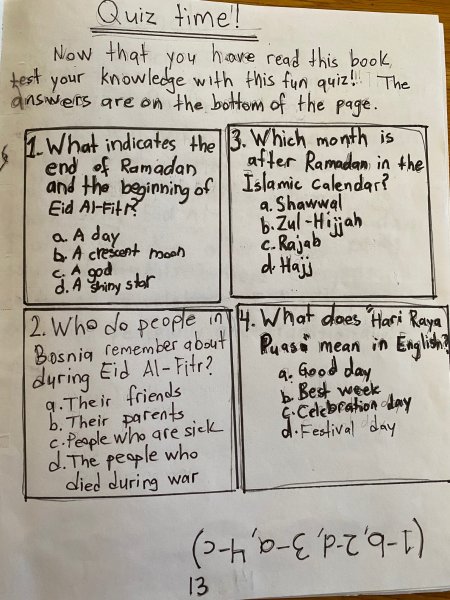 Quiz time!
Now that you have read this book,
test your knowledge with this fun quiz!! The
answers are on the bottom of the page.
1. What indicates the
end of Ramadan
and the beginning of
Eid Al-Fitr?
a. A day
b. A crescent moon
c. A god
d. A shiny star
2. Who do people in
Bosnia remember about
during Eid Al-Fitr?
a. Their friends
b. Their parents
c. People who are sick
d. The people who
died during war
3. Which month is
after Ramadan in the
Islamic calendar?
a. Shawwal
b. Zul-Hijjah
c. Rajab
d. Hajj
4. What does "Hari Raya
Puasa" mean in English?
a. Good day
b. Best week
c. Celebration day
d. Festival day
(1-b, 2-d, 3-a, 4-c)
13